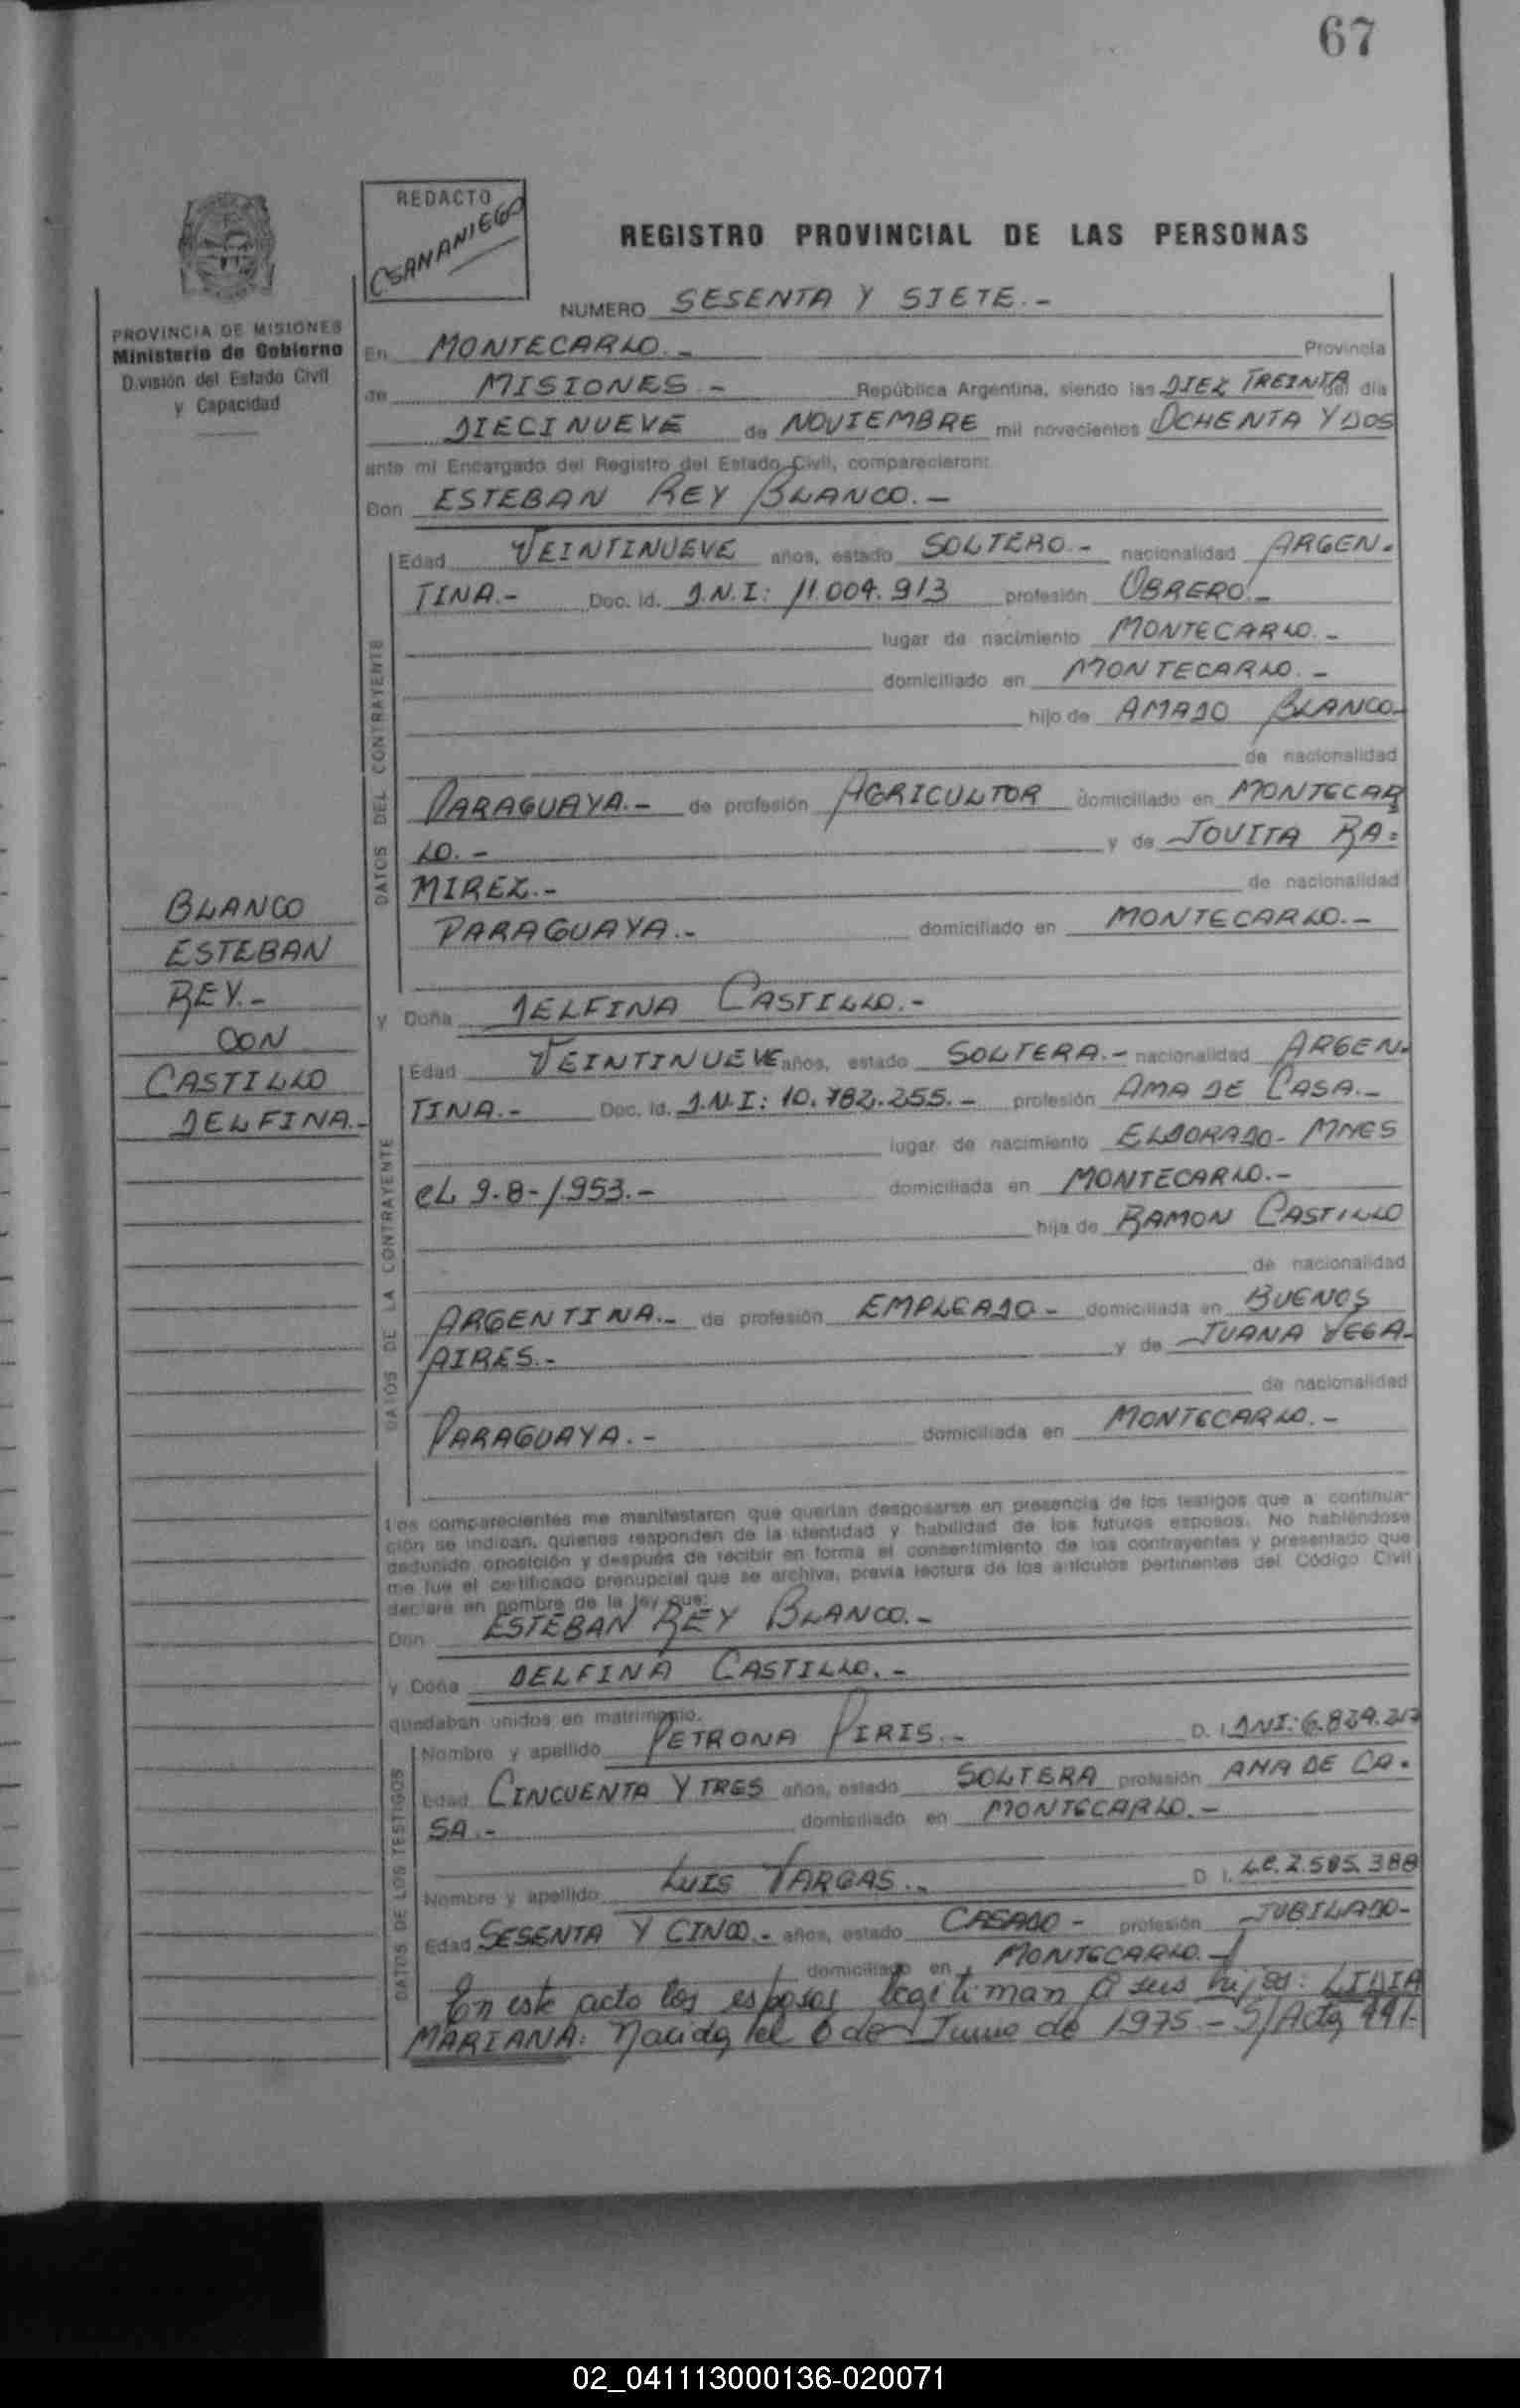 67
REDACTO
CSAMANIEGO
REGISTRO PROVINCIAL DE LAS PERSONAS
NUMERO SESENTA Y SIETE.-
PROVINCIA DE MISIONES
Ministerio de Gobierno
División del Estado Civil
y Capacidad
En MONTECARLO.- Provincia
de MISIONES.- República Argentina, siendo las DIEZ TREINTA del día
DIECINUEVE de NOVIEMBRE mil novecientos OCHENTA Y DOS
ante mi Encargado del Registro del Estado Civil, comparecieron:
Don ESTEBAN REY BLANCO.-
DATOS DEL CONTRAYENTE
Edad VEINTINUEVE años, estado SOLTERO.- nacionalidad ARGEN-
TINA.- Doc. Id. D.N.I: 11.004.913 profesión OBRERO.-
lugar de nacimiento MONTECARLO.-
domiciliado en MONTECARLO.-
hijo de AMADO BLANCO-
de nacionalidad
PARAGUAYA.- de profesión AGRICULTOR domiciliado en MONTECAR
LO.- y de JOVITA RA-
MIREZ.- de nacionalidad
PARAGUAYA.- domiciliado en MONTECARLO.-
BLANCO
ESTEBAN
REY.-
CON
CASTILLO
DELFINA.-
y Doña DELFINA CASTILLO.-
DATOS DE LA CONTRAYENTE
Edad VEINTINUEVE años, estado SOLTERA.- nacionalidad ARGEN-
TINA.- Doc. Id. D.N.I: 10.782.255.- profesión AMA DE CASA.-
lugar de nacimiento ELDORADO- MNES
eL 9-8-1.953.- domiciliada en MONTECARLO.-
hija de RAMON CASTILLO
de nacionalidad
ARGENTINA.- de profesión EMPLEADO- domiciliada en BUENOS
AIRES.- y de JUANA VEGA-
de nacionalidad
PARAGUAYA.- domiciliada en MONTECARLO.-
Los comparecientes me manifestaron que querían desposarse en presencia de los testigos que a continua-
ción se indican, quienes responden de la identidad y habilidad de los futuros esposos. No habiéndose
deducido oposición y después de recibir en forma el consentimiento de los contrayentes y presentado que
me fue el certificado prenupcial que se archiva, previa lectura de los artículos pertinentes del Código Civil
declaré en nombre de la ley que:
Don ESTEBAN REY BLANCO.-
y Doña DELFINA CASTILLO.-
quedaban unidos en matrimonio.
DATOS DE LOS TESTIGOS
Nombre y apellido PETRONA PIRIS.- D. I. DNI: 6.839.217
Edad CINCUENTA Y TRES años, estado SOLTERA profesión AMA DE CA-
SA.- domiciliado en MONTECARLO.-
Nombre y apellido LUIS VARGAS.- D. I. L.E. 7.585.388
Edad SESENTA Y CINCO.- años, estado CASADO- profesión JUBILADO-
domiciliado en MONTECARLO.-
En este acto los esposos legitiman a sus hijos: LIDIA
MARIANA: Nacida el 6 de Junio de 1975.- S/Acta 441.-
02_041113000136-020071